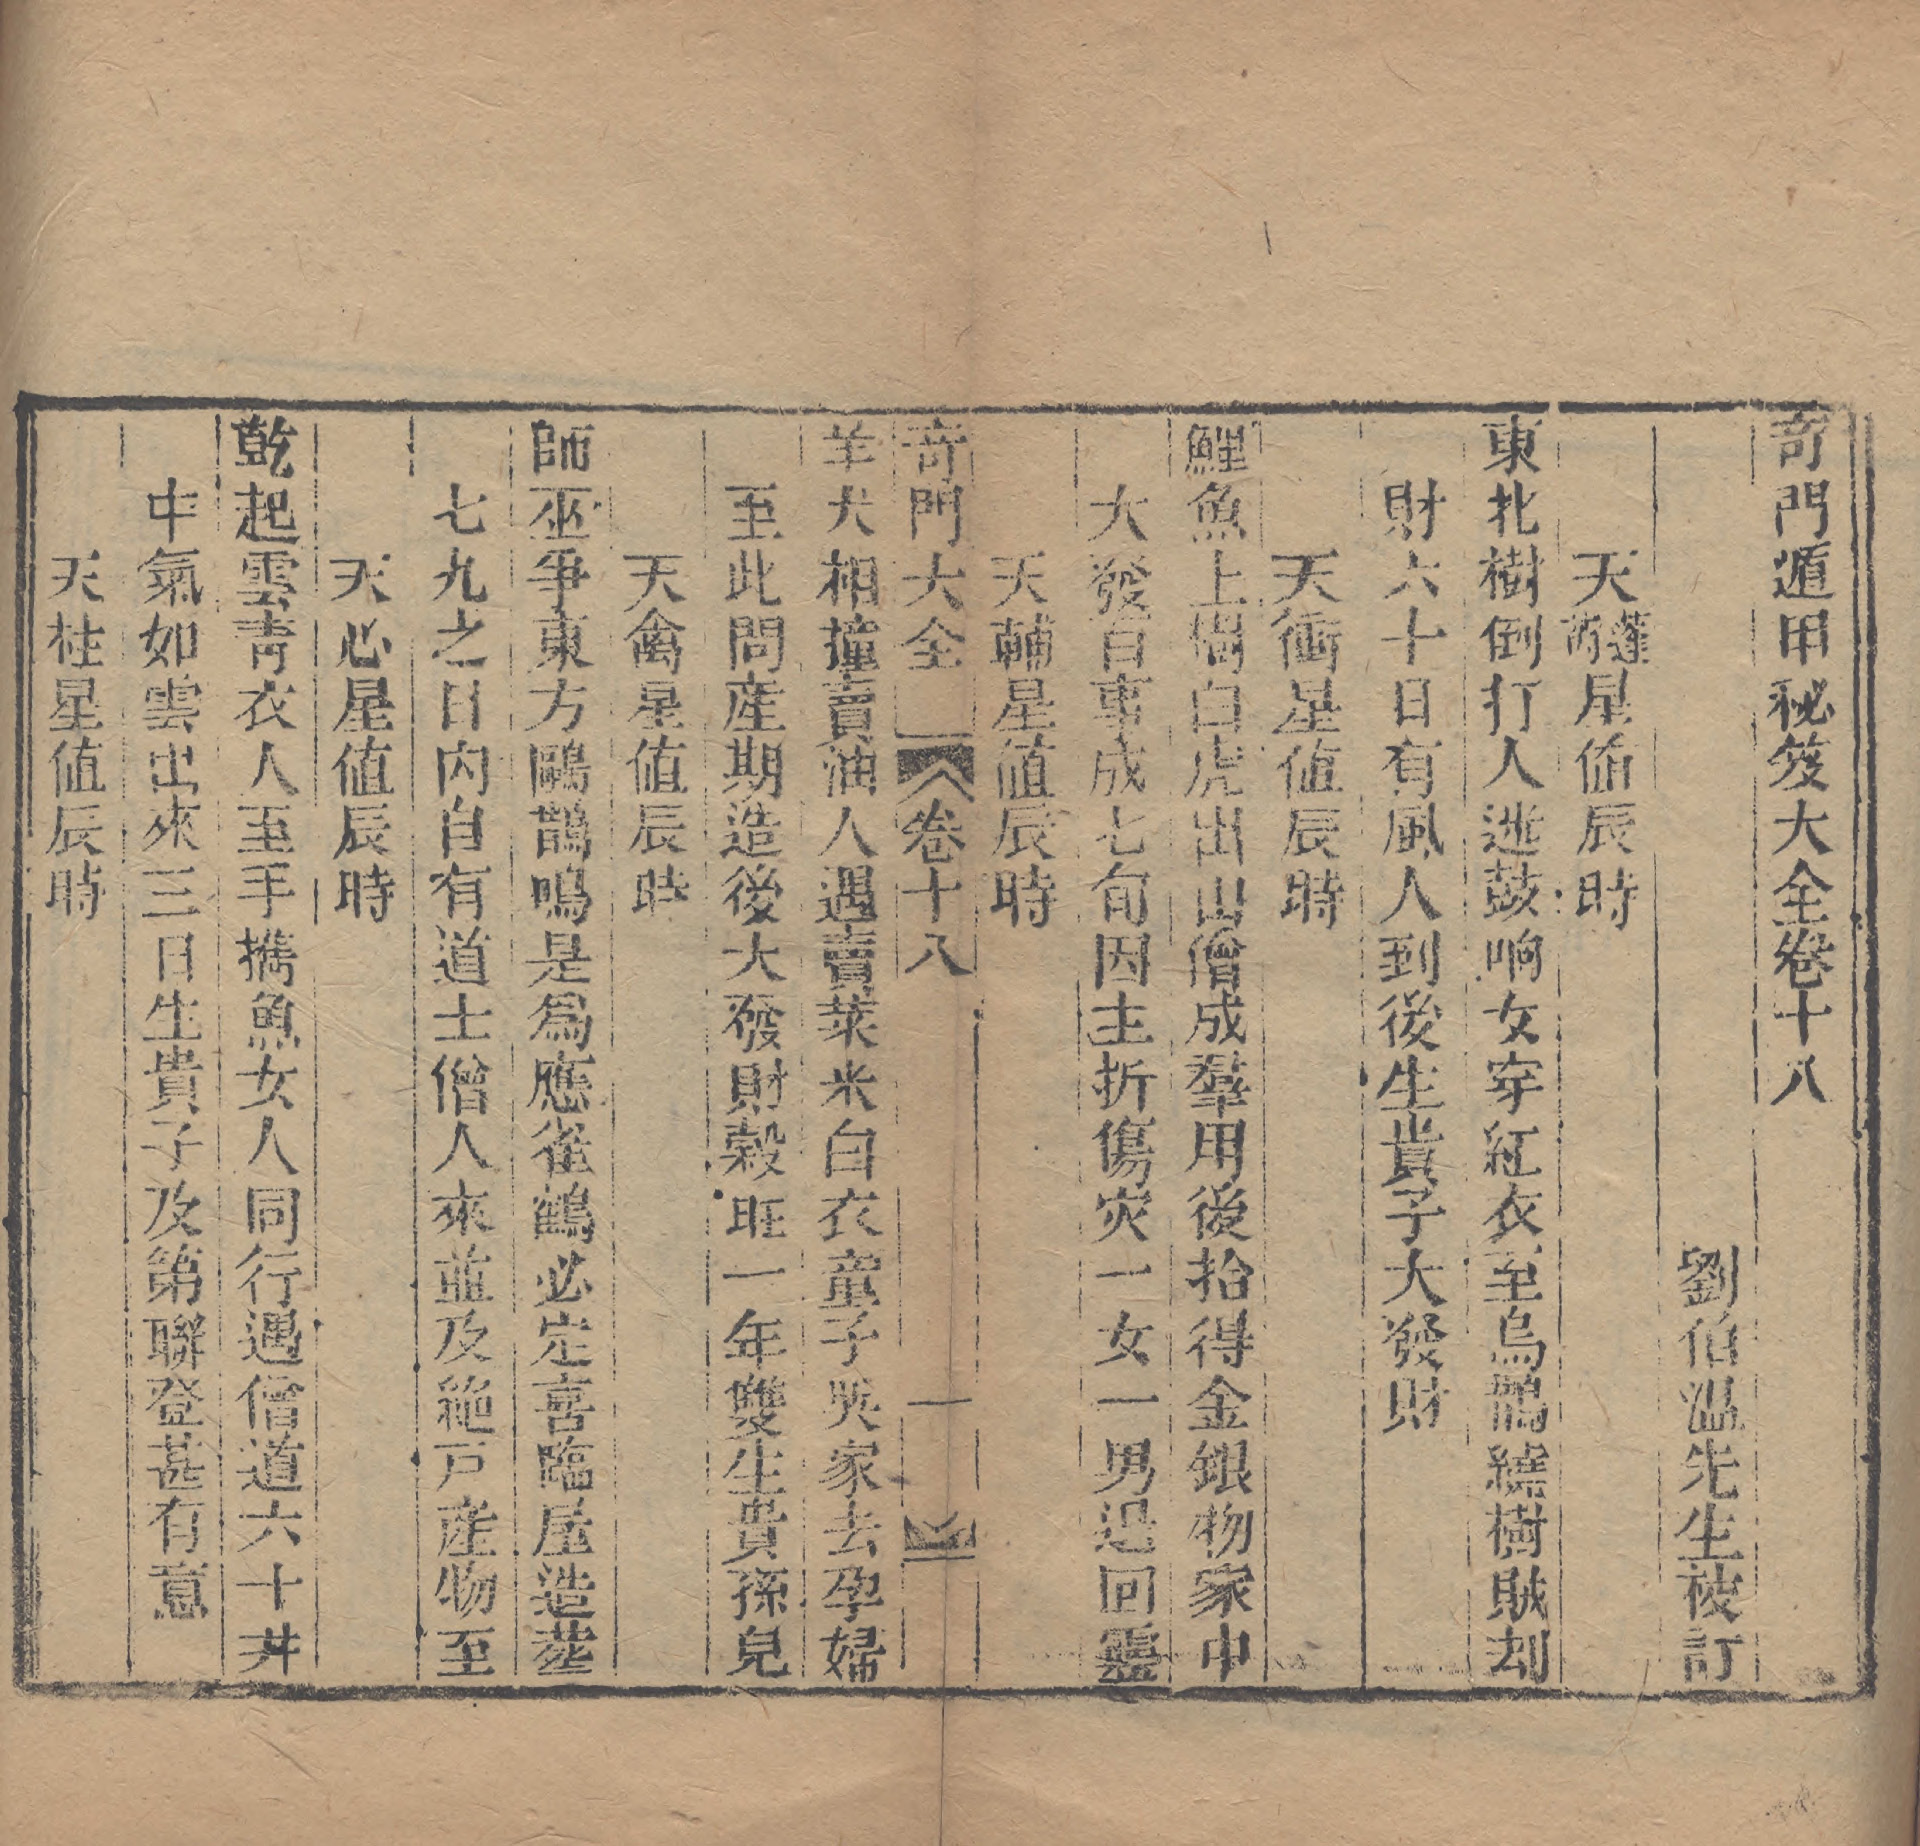 奇門遁甲秘笈大全卷十八
劉伯温先生校訂
天蓬芮星値辰時
東北樹倒打人逃鼓响女穿紅衣至烏鵲繞樹賊刦
財六十日有風人到後生貴子大發財
天衝星値辰時
鯉魚上樹白虎出山僧成羣用後拾得金銀物家中
大發百事成七旬因主折傷灾一女一男過回靈
天輔星値辰時
奇門大全 卷十八 一
羊犬相撞賣油人遇賣菜米白衣童子哭家去孕婦
至此問産期造後大發財榖旺一年雙生貴孫兒
天禽星値辰時
師巫爭東方鷗鵲鳴是爲應雀鶴必定喜臨屋造塟
七九之日内自有道士僧人來並及絶戸産物至
天心星値辰時
乾起雲青衣人至手擕魚女人同行遇僧道六十井
中氣如雲出來三日生貴子及第聯登甚有意
天柱星値辰時